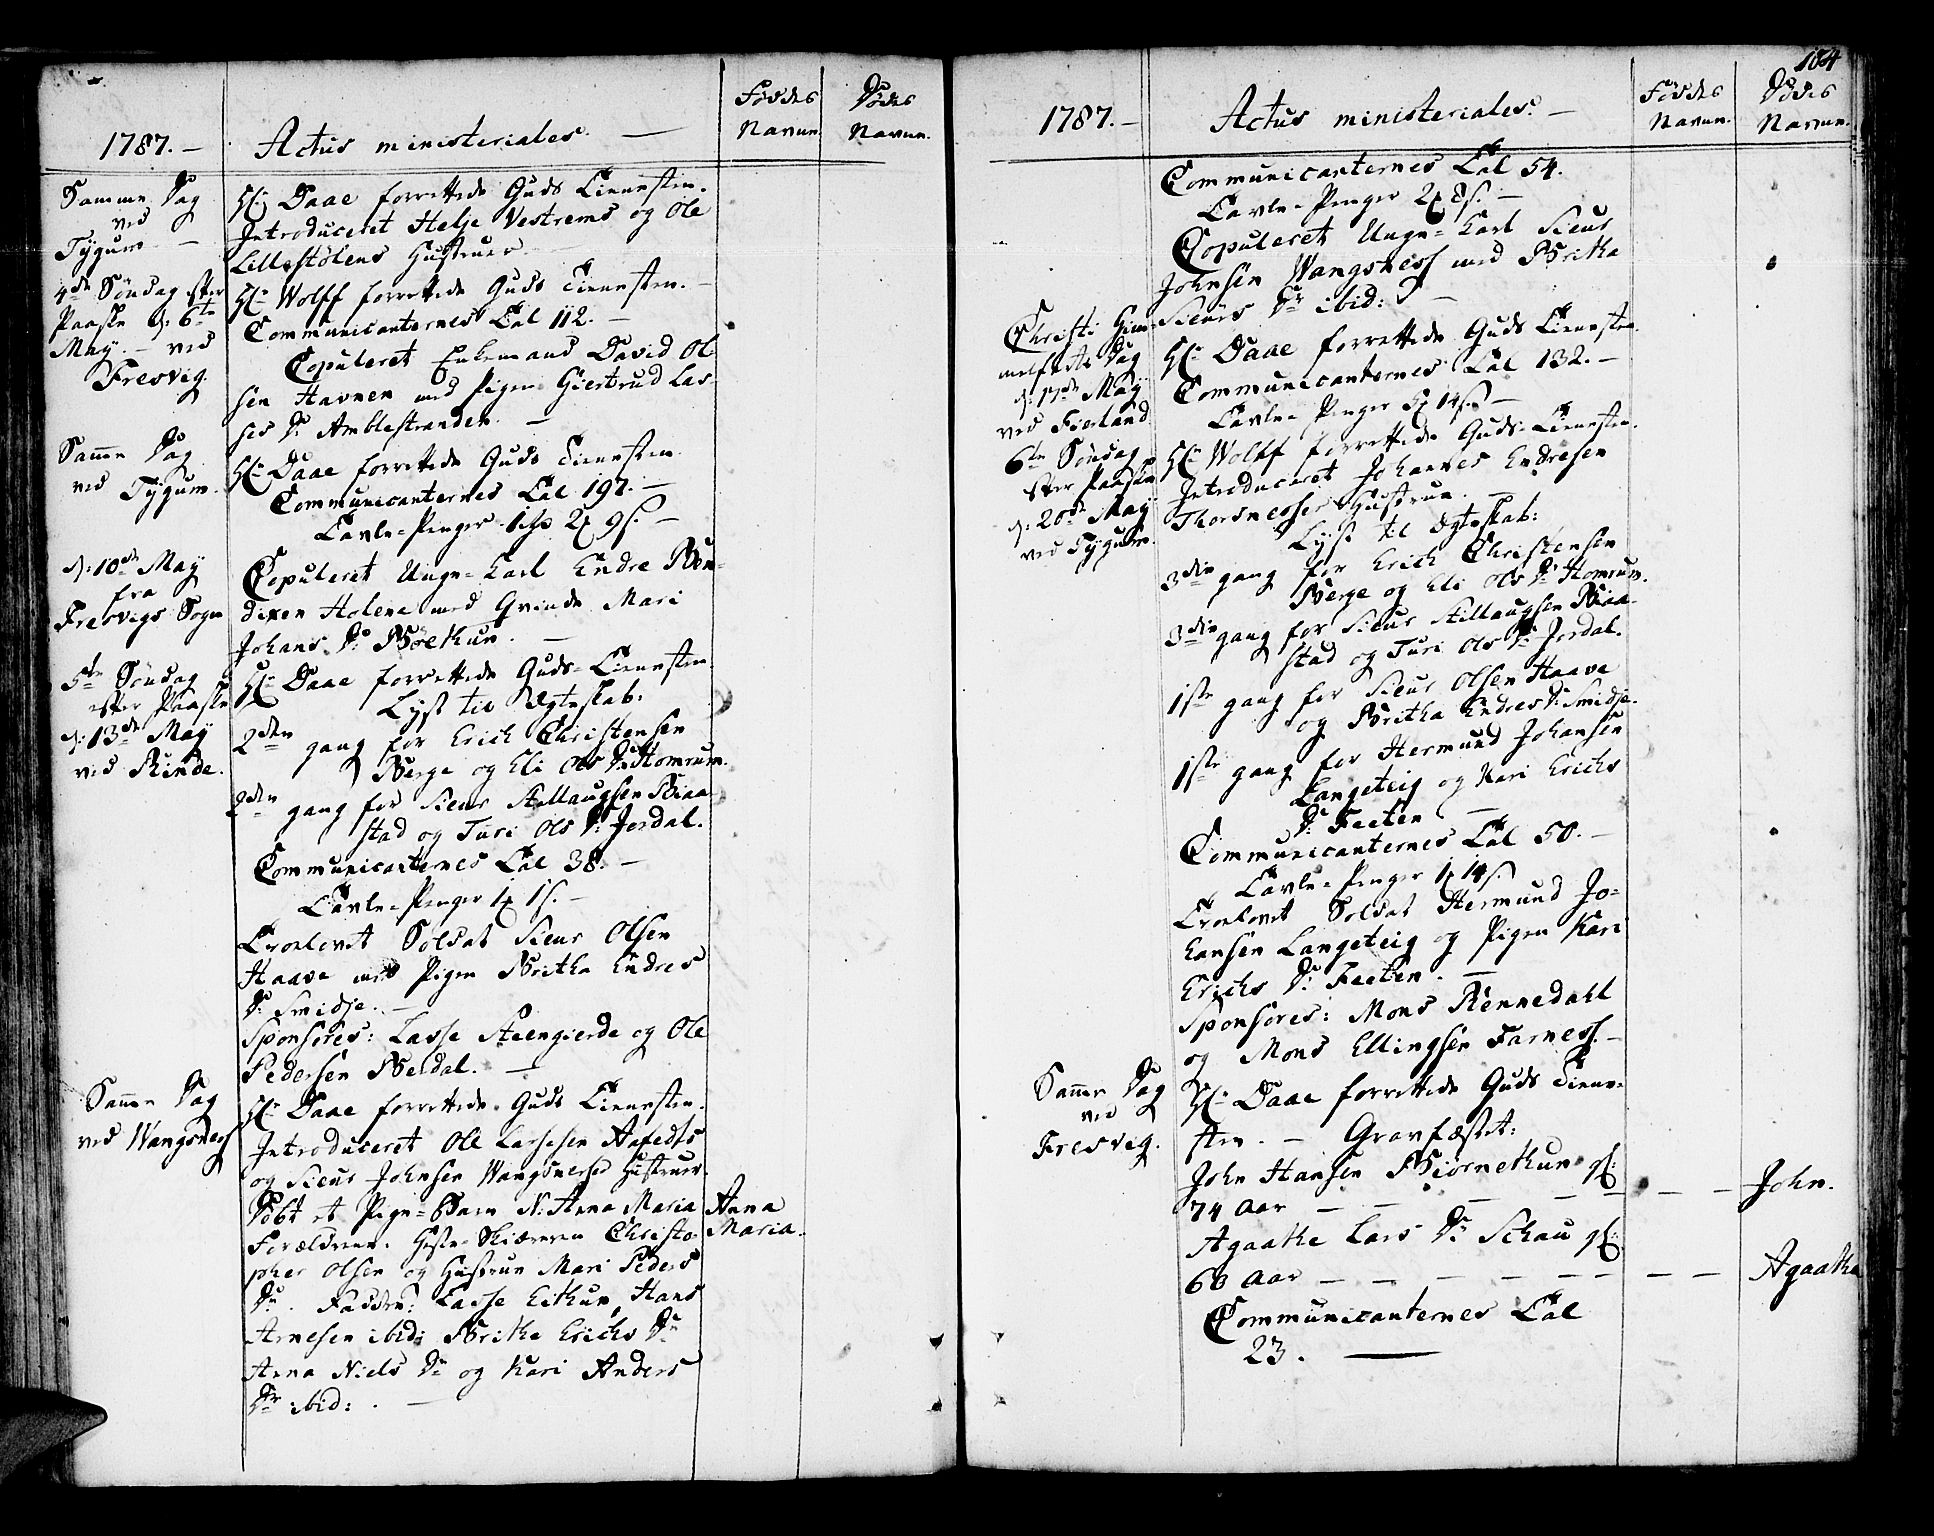 1787. –
Actus ministeriales. —
Fødtes Navne.
Dødes Navne.
Samme Dag
ved
Tygum. –
Hr: Daae forrettede Guds Tienesten.
Introduceret Helje Vestrems og Ole
Lillestølens Hustruer.
4de Søndag efter
Paaske d: 6te
May. – ved
Fresvig.
Hr: Wolff forrettede Guds Tienesten. –
Communicanternes Tal 112. –
Copuleret Enkemand David Ol-
sen Havnen med Pigen Giertrud Las-
ses Dr: Amblestranden. –
Samme Dag
ved Tygum.
Hr: Daae forrettede Guds Tienesten.
Communicanternes Tal 197. –
Tavle-Penger 2 9 s. –
d: 10de May
fra
Fresvigs Sogn
Copuleret Unge-Karl Endre Ben-
dixen Holene med Qvinde Mari
Johans Dr: Bøethun. –
5te Søndag
efter Paaske
d: 13de May
ved Rinde.
Hr: Daae forrettede Guds-Tienesten.
Lyst til Ægteskab:
2den gang for Erich Christensen
Berge og Eli Ols Dr: Homrum.
2den gang for Sieur Aslaugsen Biaa-
stad og Turi Ols Dr: Jordal.
Communicanternes Tal 38. –
Tavle-Penger 1 1 s. –
Troelovet Soldat Sieur Olsen
Haave med Pigen Britha Endres
Dr: Smidje. –
Sponsores: Lasse Steengierde og Ole
Pedersen Berdal. –
Samme Dag
ved Wangsness
Hr: Daae forrettede Guds Tienesten.
Introduceret Ole Lassesen Hafedts
og Sieur Johnsen Wangsnesses Hustruer.
Døbt et Pige-Barn N: Anna Maria
Anna
Maria.
Forældrene. Heste-Skiæreren Christo-
pher Olsen og Hustrue Mari Peders
Dr. Faddere: Lasse Eithun, Hans
Arnesen ibid: Britha Erichs Dr
Anna Niels Dr og Kari Anders
Dr ibid: . –
184
1787. –
Actus ministeriales. –
Fødtes Navne.
Dødes Navne.
Communicanternes Tal 54.
Tavle-Penger 2 8 s. –
Copuleret Unge-Karl Sieur
Johnsen Wangsness med Britha
Sieurs Dr ibid: –
Christi Him-
melfarts Dag
d: 17de May
ved Fierland.
Hr: Daae forrettede Guds Tienesten.
Communicanternes Tal 132. –
Tavle-Penger 5 14 s. –
6te Søndag
efter Paaske
d: 20de May
ved Tygum.
Hr: Wolff forrettede Guds-Tienesten.
Introduceret Johannes Endresen
Thorsnesses Hustrue. –
Lyst til Ægteskab:
3die gang for Erich Christensen
Berge og Eli Ols Dr: Homrum.
3die gang for Sieur Aslaugsen Biaa-
stad og Turi Ols Dr: Jordal.
1ste gang for Sieur Olsen Haave
og Britha Endres Dr: Smidje.
1ste gang for Hermund Johansen
Langeteig og Kari Erichs
Dr: Feeten –
Communicanternes Tal 50. –
Tavle-Penger 1 14 s.
Troelovet Soldat Hermund Jo-
hansen Langeteig og Pigen Kari
Erichs Dr: Feeten. –
Sponsores: Mons Rennedahl
og Mons Ellingsen Farness. –
Samme Dag
ved
Fresvig.
Hr: Daae forrettede Guds Tiene-
sten. – Gravfæstet:
John Hansen Biørnethun gl:
74 Aar – – – – – – –
John.
Agaathe Lars Dr Schau gl:
60 Aar – – – – – – – –
Agaathe
Communicanternes Tal
23. —